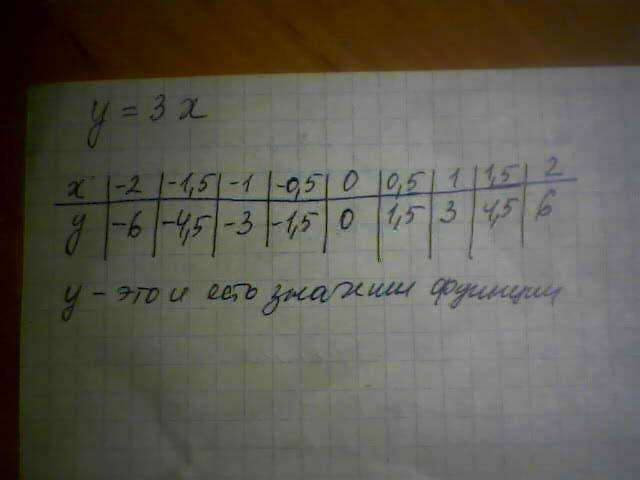 y = 3x
x | -2 | -1,5 | -1 | -0,5 | 0 | 0,5 | 1 | 1,5 | 2
y | -6 | -4,5 | -3 | -1,5 | 0 | 1,5 | 3 | 4,5 | 6
y - это и есть значении функции